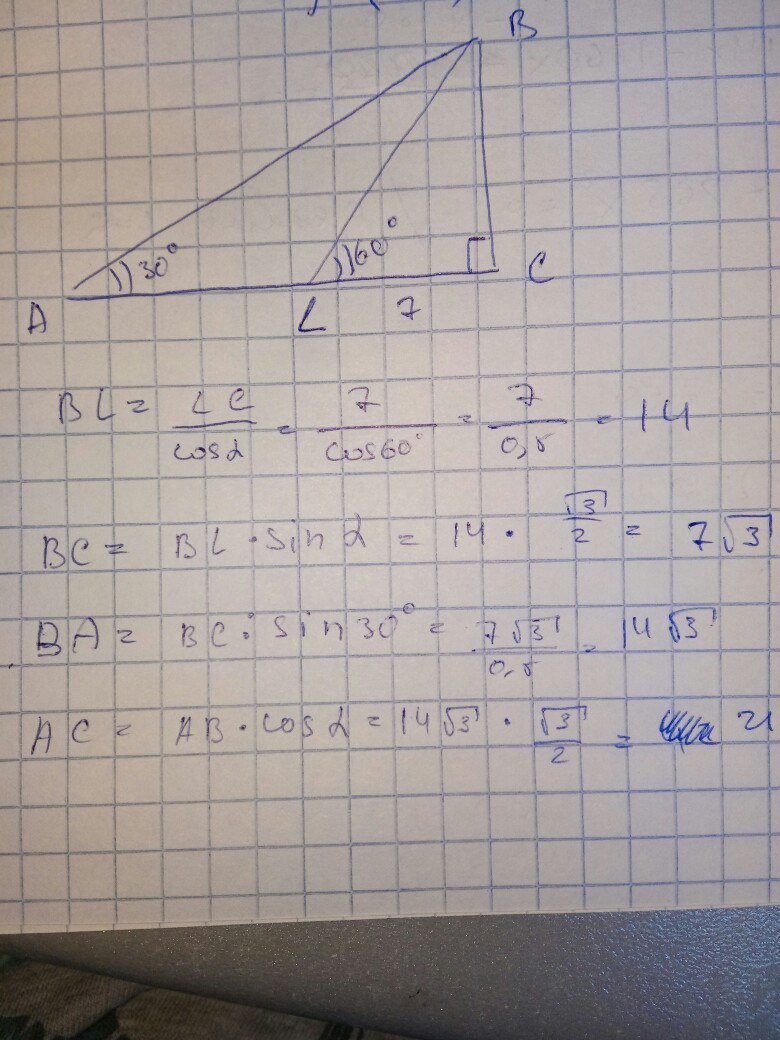 B
30°
60°
C
A
L
7
BL = LC/cosα = 7/cos60° = 7/0,5 = 14
BC = BL · sinα = 14 · √3/2 = 7√3
BA = BC : sin30° = 7√3/0,5 = 14√3
AC = AB · cosα = 14√3 · √3/2 = 21